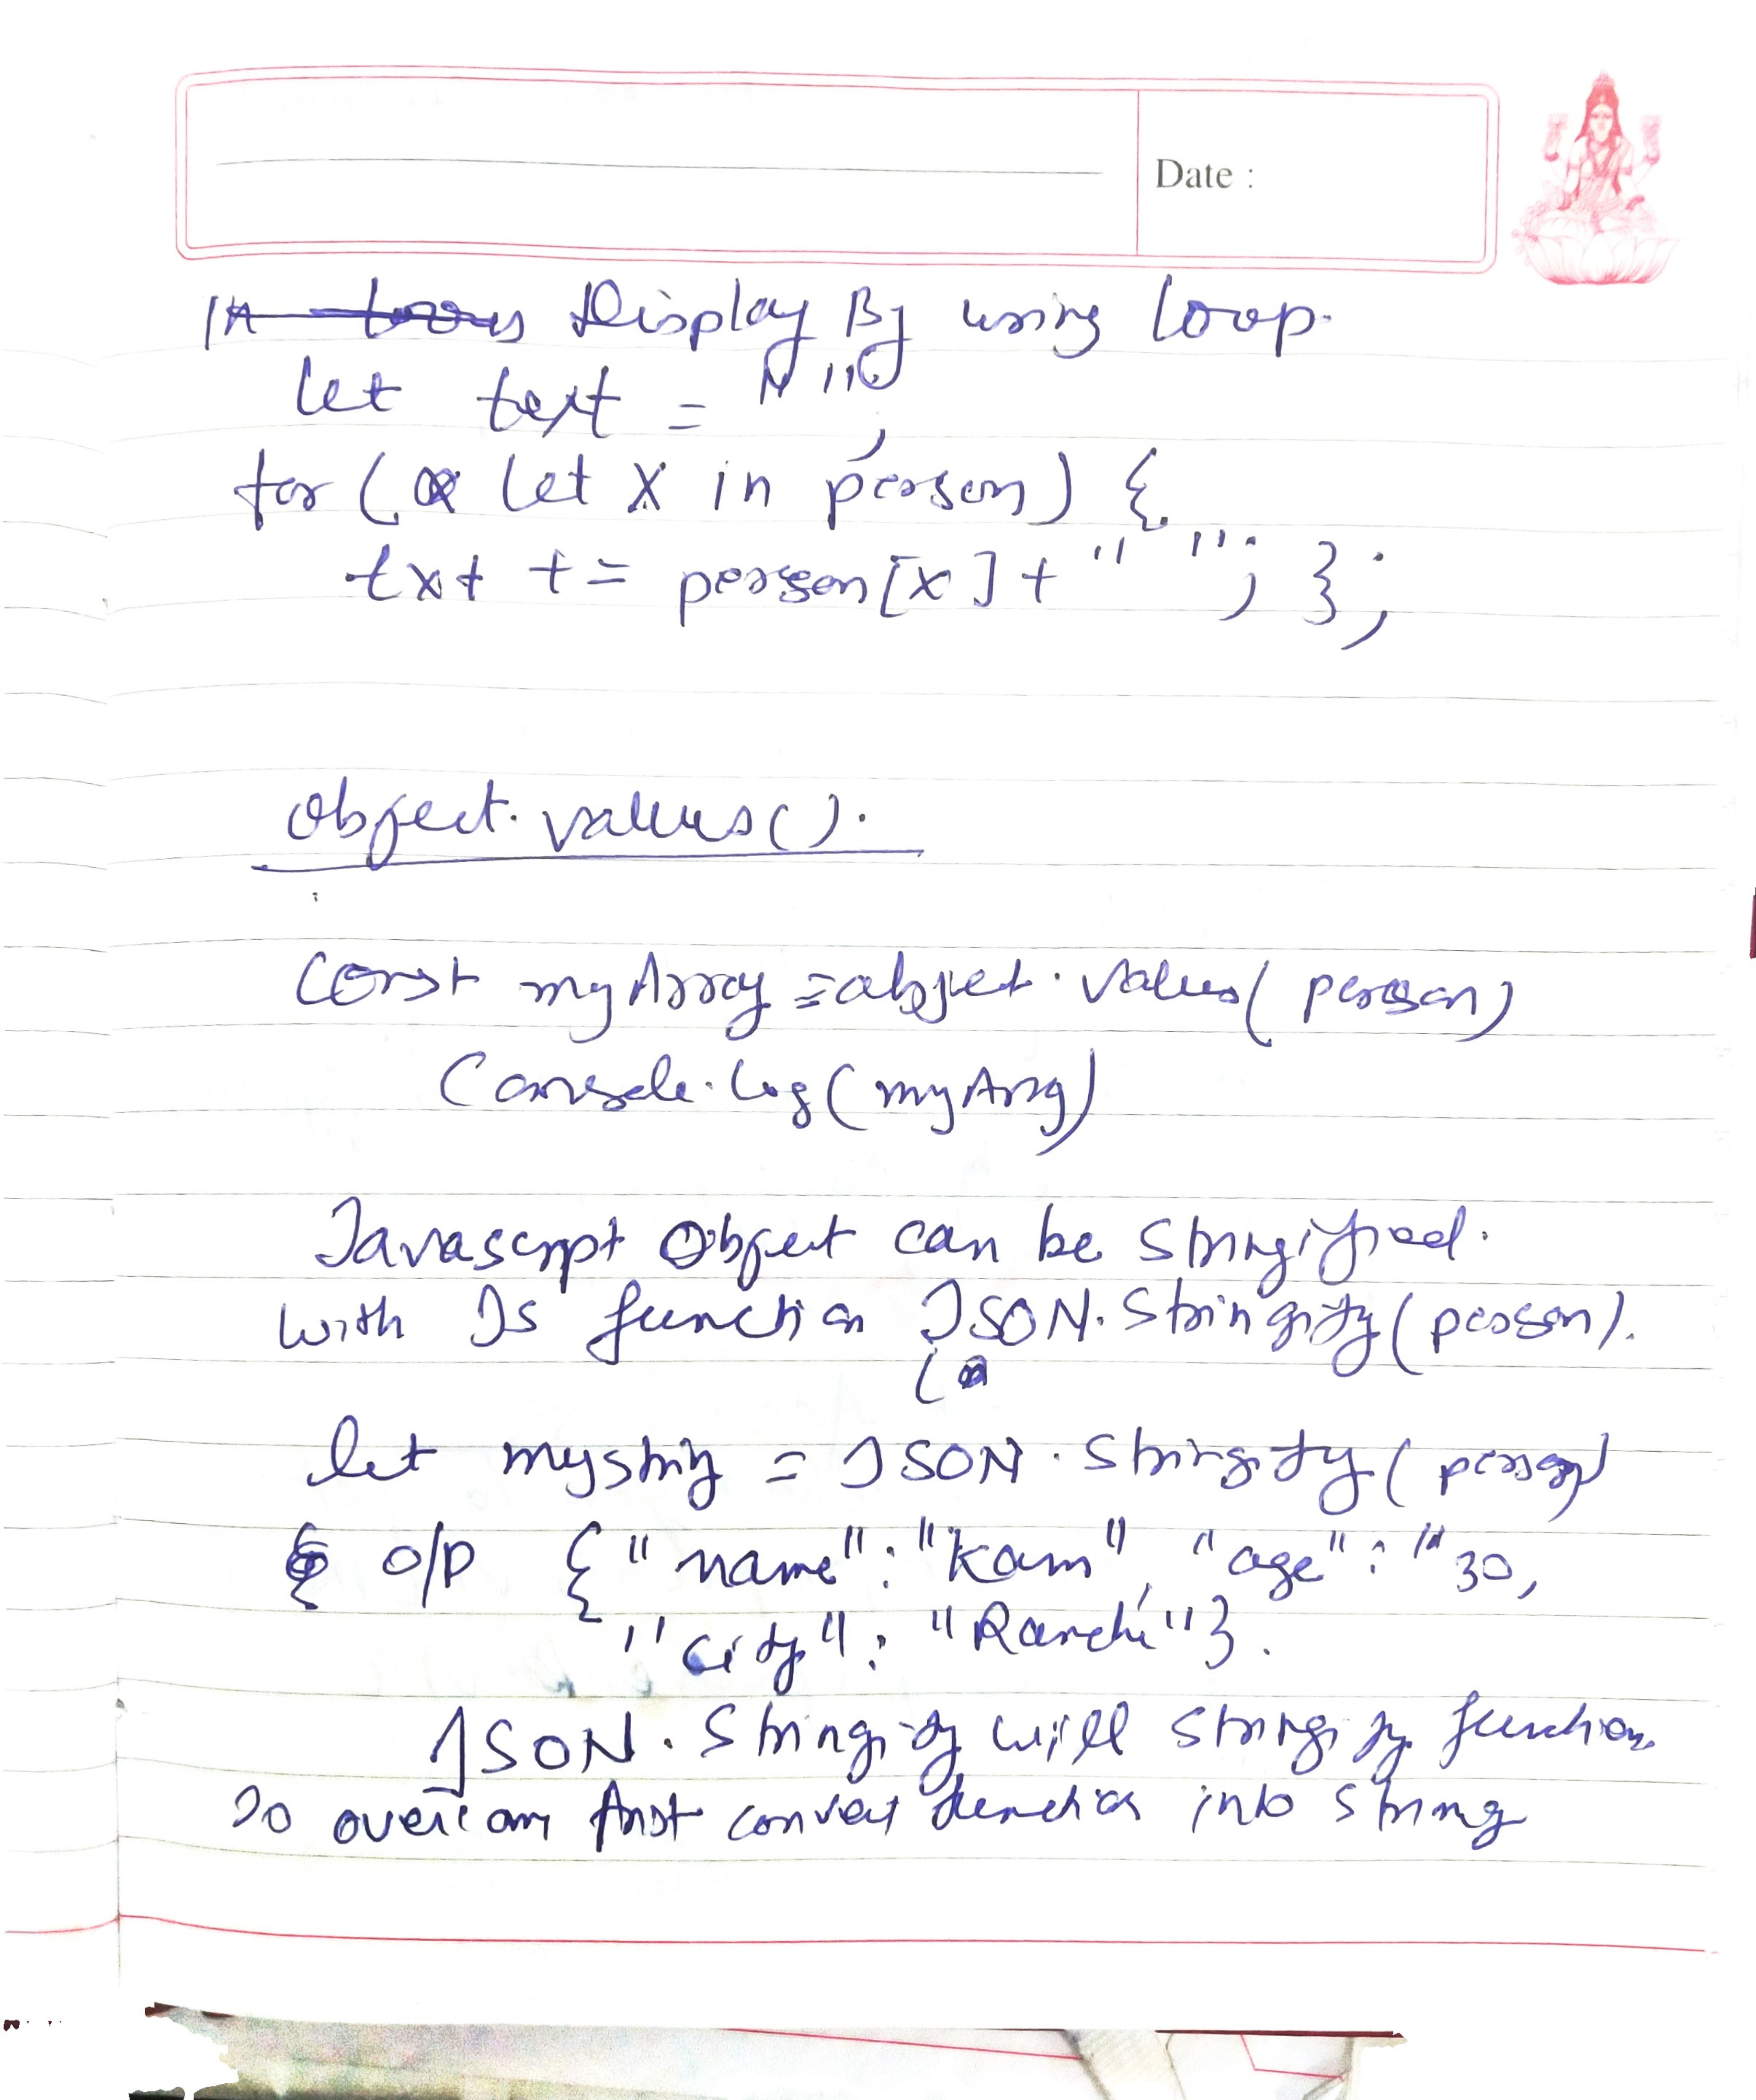 Date :
Display By using loop.
let text = " ";
for ( let x in person) {
txt += person[x] + " "; };
object. values().
Const myArray = object. values( person)
Console.log(myArray)
Javascript Object can be stringified.
with Js function JSON. Stringify(person).
let mystring = JSON. Stringify( person)
o/p { "name" : "Kam", "age" : "30,
"city" : "Ranchi"}.
JSON. Stringify will stringify function
To overcom first convert function into string